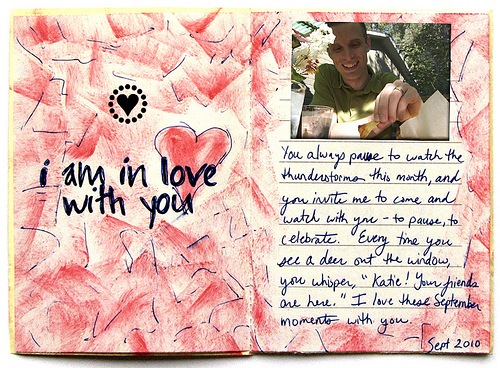 i am in love
with you
You always pause to watch the
thunderstorms this month, and
you invite me to come and
watch with you - to pause, to
celebrate. Every time you
see a deer out the window,
you whisper, "Katie! Your friends
are here." I love these September
moments with you.
Sept 2010